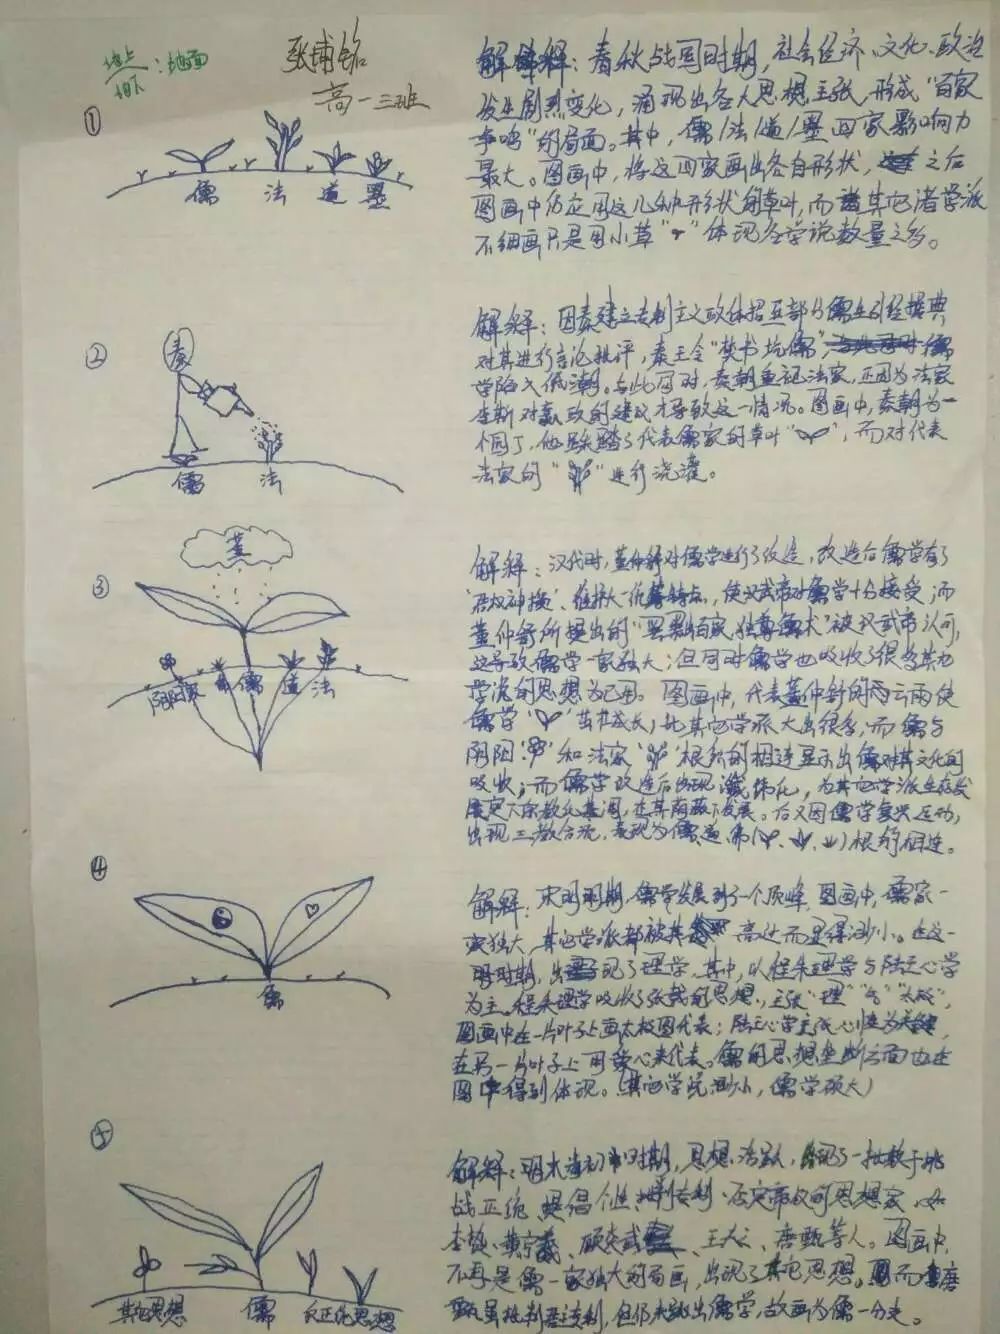 地上
地下：地面
张埔铭
高一三班
①
儒 法 道 墨
解释：春秋战国时期，社会经济、文化、政治
发生剧烈变化，涌现出各大思想主张，形成“百家
争鸣”的局面。其中，儒/法/道/墨四家影响力
最大。图画中，将这四家画出各自形状，之后
图画中仍应用这几种形状的草叶，而其它诸学派
不细画只是用小草“”体现各学说数量之多。
②
秦
儒 法
解释：因秦建立专制主义政体招至部分儒生引经据典
对其进行言论批评，秦王令“焚书坑儒”，儒
学陷入低潮。与此同时，秦朝重视法家，正因为法家
李斯对嬴政的建议才导致这一情况。图画中，秦朝为一
个园丁，他踩踏了代表儒家的草叶“”，而对代表
法家的“”进行浇灌。
③
董
阴阳家 佛 儒 道 法
解释：汉代时，董仲舒对儒学进行了改造，改造后儒学有了
‘君权神授’、维护大一统等特点，使汉武帝对儒学十分接受，而
董仲舒所提出的“罢黜百家，独尊儒术”被汉武帝认可，
这导致儒学一家独大；但同时儒学也吸收了很多其他
学说的思想为己用。图画中，代表董仲舒的雨云雨使
儒学‘’茁壮成长，比其它学派大出很多；而儒与
阴阳‘’和法家‘’根部的相连显示出儒对其文化的
吸收；而儒学改造后出现谶纬化，为其它学派生存发
展，在其荫蔽下发展。后又因儒学复兴运动，
出现三教合流，表现为儒、道、佛（、、）根的相连。
④
儒
解释：宋明时期，儒学发展到了一个顶峰，图画中，儒家一
家独大，其它学派都被其高达而显得渺小。在这一
时期，出现了理学，其中，以程朱理学与陆王心学
为主。程朱理学吸收了张载的思想，主张“理”“气”“太极”，
图画中在一片叶子上画太极图代表；陆王心学主张心性为关键，
在另一片叶子上用爱心来代表。儒的思想垄断方面也在
图中得到体现。（其它学说渺小，儒学硕大）
⑤
其他思想 儒 反正统思想
解释：明末清初时期，思想活跃，出现了一批敢于挑
战正统、提倡个性、批判专制、否定帝权的思想家，如
李贽、黄宗羲、顾炎武、王夫之、唐甄等人。图画中，
不再是儒一家独大的局面，出现了其它思想。而唐
甄虽批判君主专制，但仍未跳出儒学，故画为儒一分支。